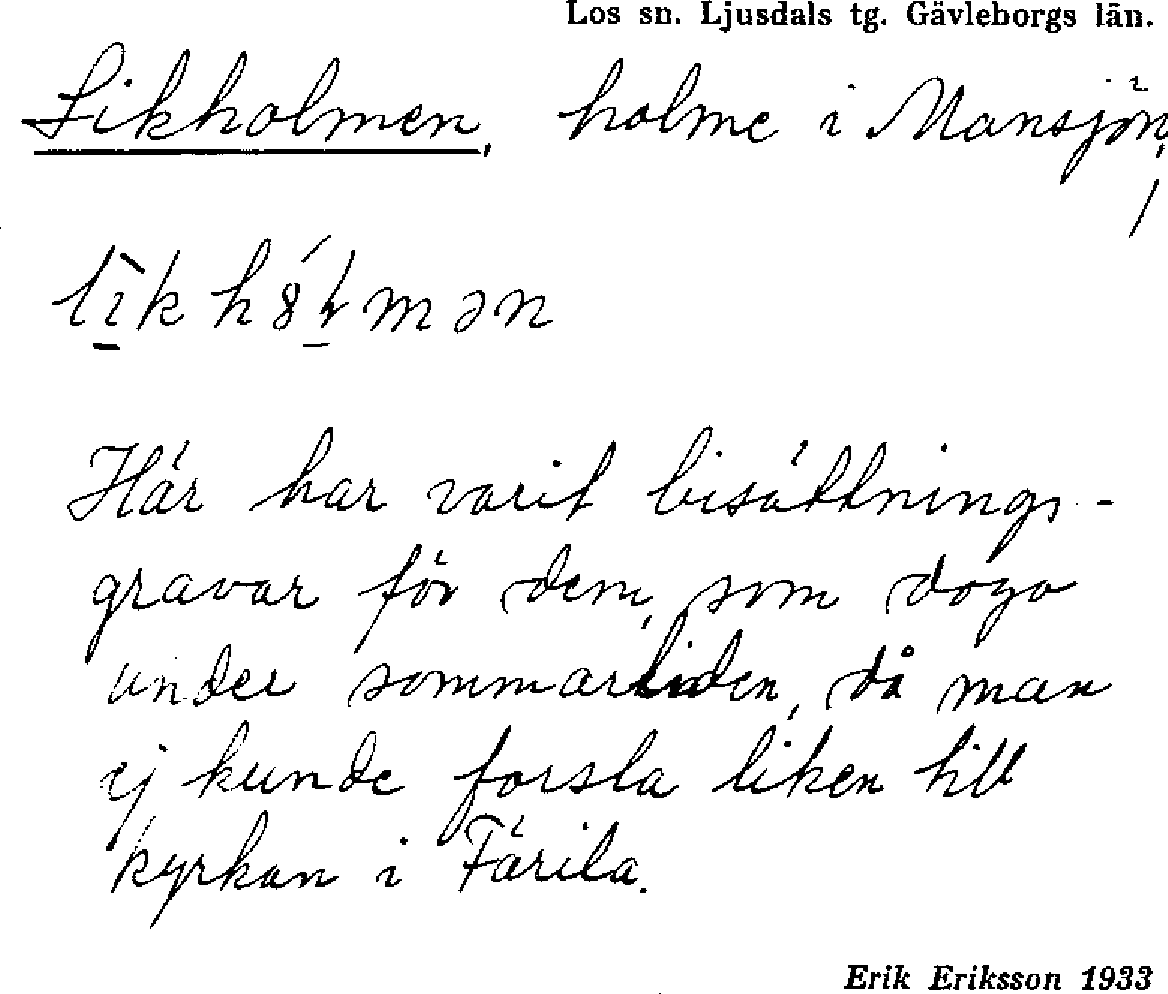 Los sn. Ljusdals tg. Gävleborgs län.
Likholmen, holme i Mansjön,
Här har varit bisättnings-
gravar för dem, som dogo
under sommartiden, då man
ej kunde forsla liken till
kyrkan i Färila.
Erik Eriksson 1933